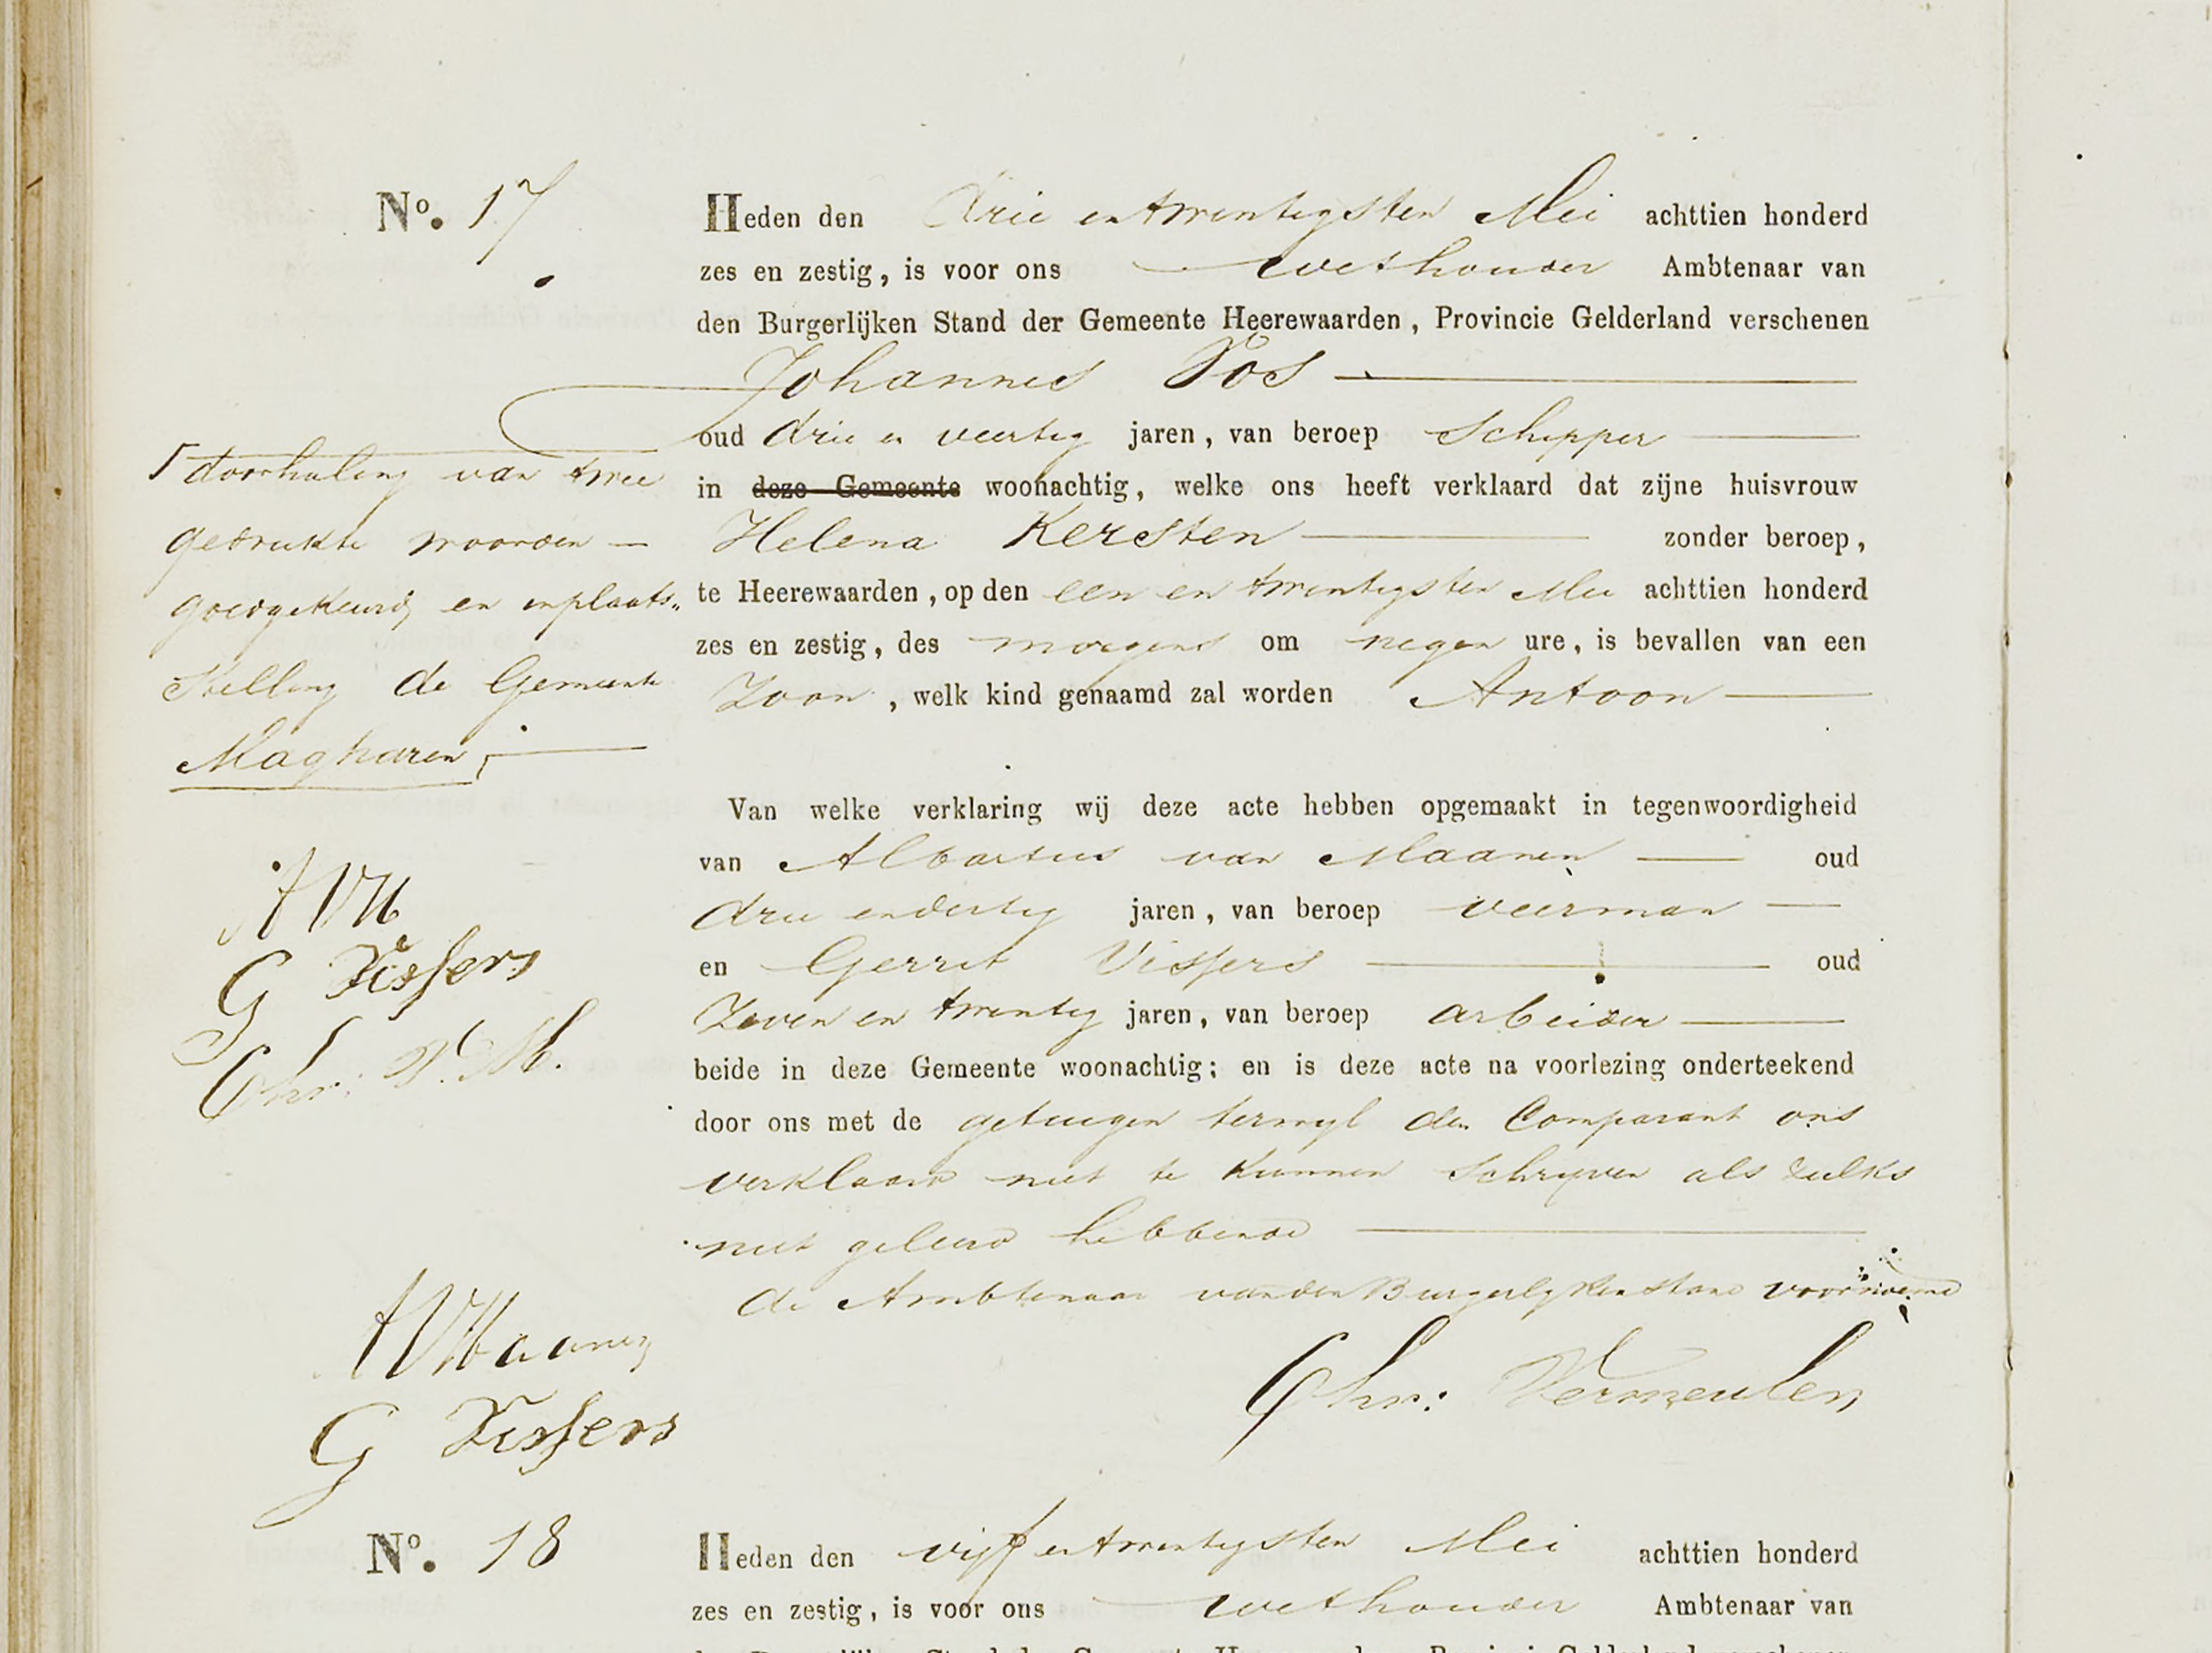 No. 17
Heden den drie en twentigsten Mei achttien honderd
zes en zestig, is voor ons wethouder Ambtenaar van
den Burgerlijken Stand der Gemeente Heerewaarden, Provincie Gelderland verschenen
Johannes Pos
oud drie en veertig jaren, van beroep Schipper
in deze Gemeente woonachtig, welke ons heeft verklaard dat zijne huisvrouw
Helena Kersten zonder beroep,
te Heerewaarden, op den een en twentigsten Mei achttien honderd
zes en zestig, des morgens om negen ure, is bevallen van een
Zoon, welk kind genaamd zal worden Antoon
doorhaling van twee
gedrukte woorden
goedgekeurd en inplaats„
stelling de Gemeente
Magharen,
Van welke verklaring wij deze acte hebben opgemaakt in tegenwoordigheid
van Albartus van Maanen oud
drie endertig jaren, van beroep veerman
en Gerrit Vissers oud
Zeven en twentig jaren, van beroep arbeider
beide in deze Gemeente woonachtig; en is deze acte na voorlezing onderteekend
door ons met de getuigen terwyl den Comparant ons
verklaard niet te kunnen Schryven als zulks
niet geleerd hebbende
de Ambtenaar van den Burgerlyken stand voornoemd
AVM
G Vissers
Chr: V. M.
AVMaanen
G Vissers
Chr: Vermeulen
No. 18
Heden den vijf en twentigsten Mei achttien honderd
zes en zestig, is voor ons wethouder Ambtenaar van